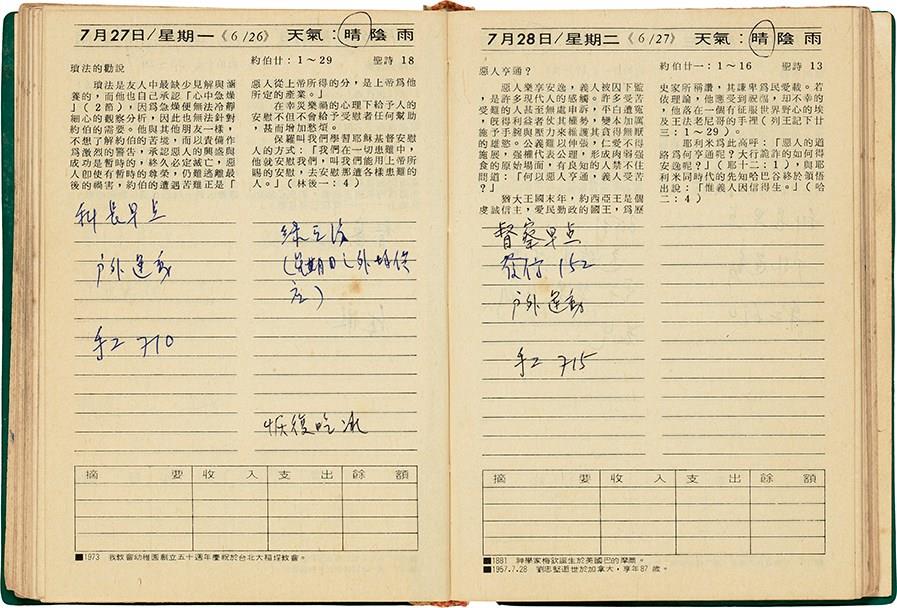 7月27日/星期一《6/26》 天氣：晴陰雨
約伯廿：1～29 聖詩 18
瑣法的勸說
瑣法是友人中最缺少見解與涵
養的，而他自己承認「心中急燥
」（2節），因爲急燥便無法冷靜
細心的觀察分析，因此也無法針對
約伯的需要。他與其他朋友一樣，
不想了解約伯的苦境，而以責備作
爲激烈的警告，承認惡人的興盛與
成功是暫時的，終久必定滅亡，惡
人卽使有暫時的尊榮，仍難逃離最
後的禍害，約伯的遭遇苦難正是「
惡人從上帝所得的分，是上帝爲他
所定的產業。」
在幸災樂禍的心理下給予人的
安慰不但不會給予受慰者任何幫助
，甚而增加愁煩。
保羅叫我們學習耶穌基督安慰
人的方式：「我們在一切患難中，
他就安慰我們，叫我們能用上帝所
賜的安慰，去安慰那遭各樣患難的
人。」（林後一：4）
科長早点
戶外運動
手工 710
綠豆湯
（星期日
恢復吃冰
摘要 收入 支出 餘額
■1973 我教會幼稚園創立五十週年慶祝於台北大稻埕教會。
7月28日/星期二《6/27》 天氣：晴陰雨
約伯廿一：1～16 聖詩 13
惡人亨通？
惡人樂享安逸，義人被囚下監
，是許多現代人的感觸。許多受苦
受難的人甚至無處申訴，平白遭冤
，旣得利益者仗其權勢，變本加厲
施予手腕與壓力來維護其貪得無厭
的雄慾。公義難以伸張，仁愛不得
施展，强權代表公理，形成肉弱强
食的原始場面，有良知的人禁不住
問道：「何以惡人亨通，義人受苦
？」
猶大王國末年，約西亞王是個
虔誠信主，愛民勤政的國王，爲歷
史家所稱讚，其謙卑爲民愛載。若
依理論，他應受到祝福，却不幸的
，他落在一個有征服世界野心的埃
及王法老尼哥的手裡（列王記下廿
三：1～29）。
耶利米爲此高呼：「惡人的道
路爲何亨通呢？大行詭詐的如何得
安逸呢？」（耶十二：1），與耶
利米同時代的先知哈巴谷終於領悟
出說：「惟義人因信得生。」（哈
二：4）
督察早点
發信 152
戶外運動
手工 715
摘要 收入 支出 餘額
■1881 神學家梅欽誕生於美國巴的摩爾。
■1957.7.28 劉忠堅逝世於加拿大，享年87歲。